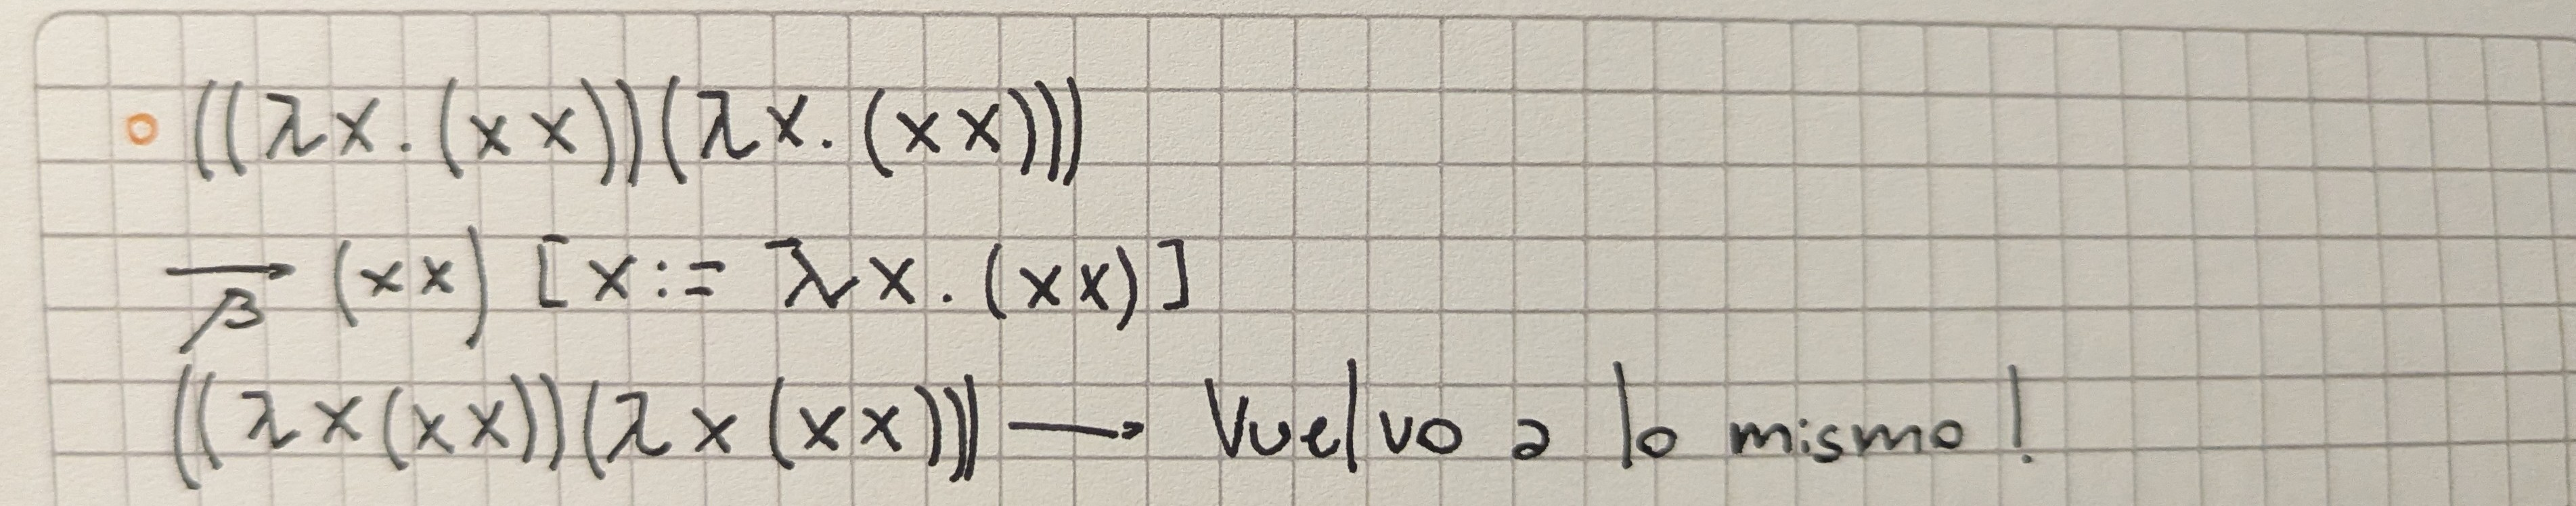 ((λx.(xx))(λx.(xx)))
→β (xx) [x:= λx.(xx)]
((λx(xx))(λx(xx))) → Vuelvo a lo mismo!